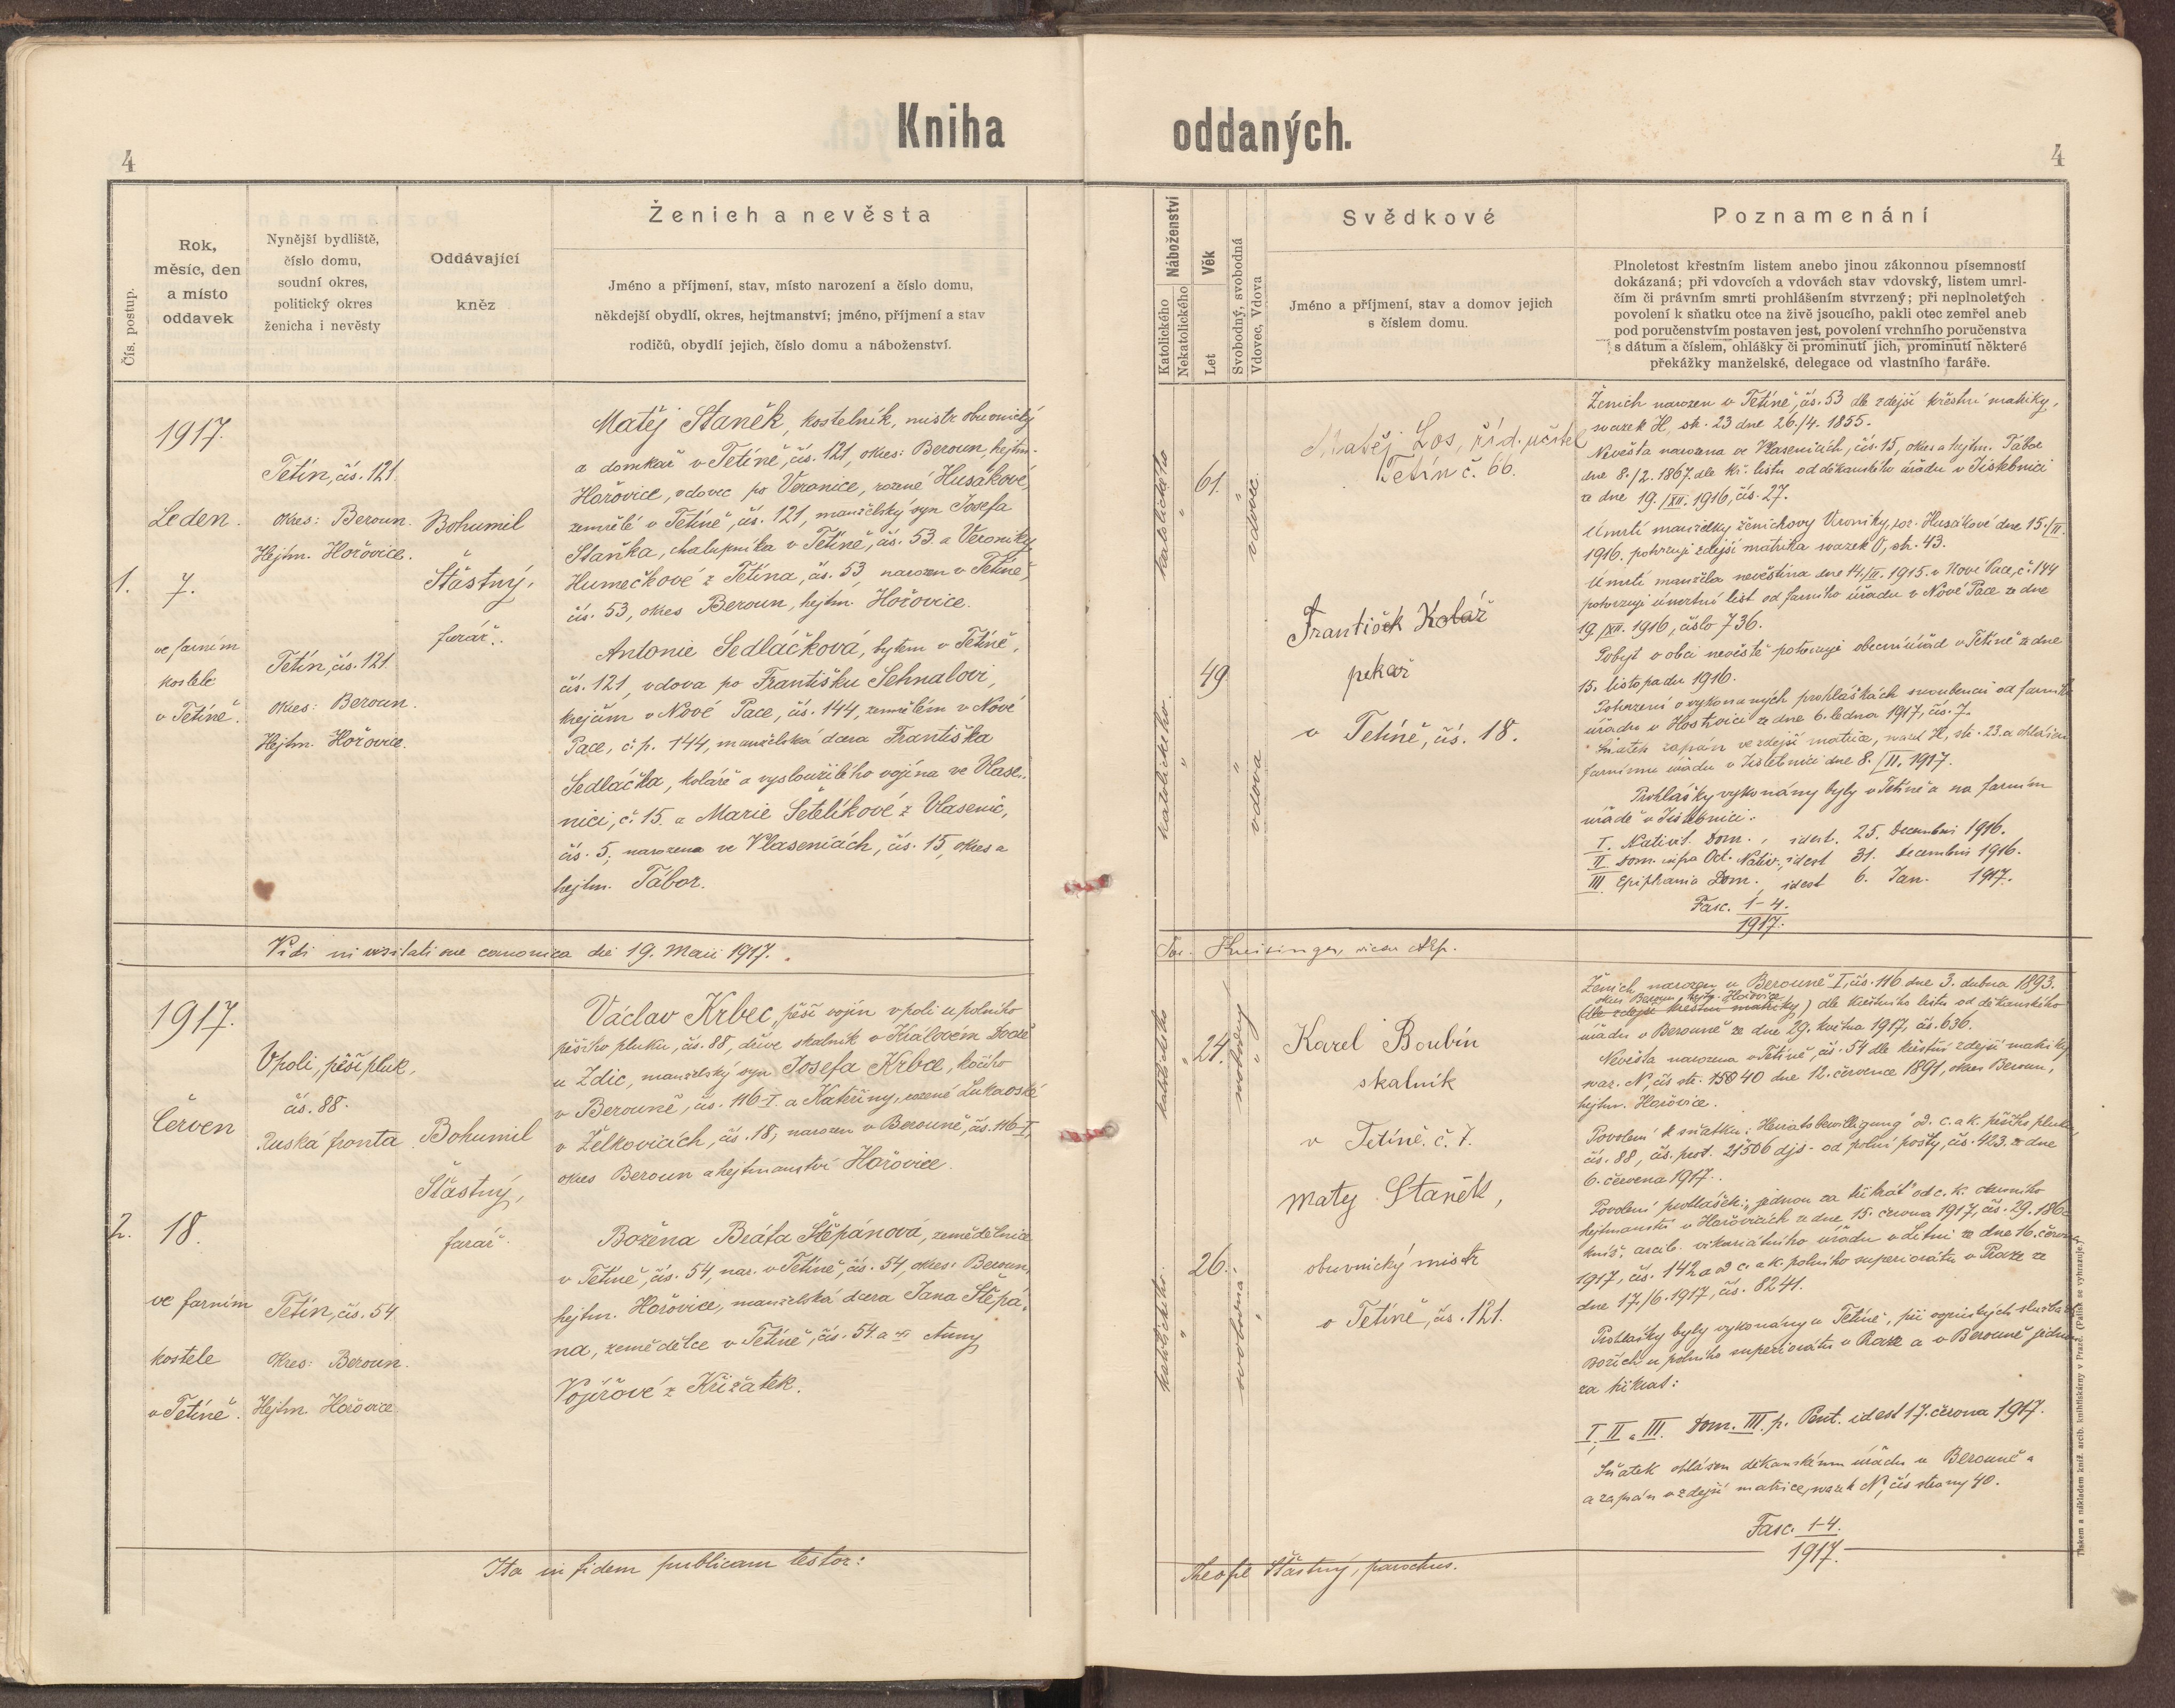 Kniha oddaných.
4
4
Čís. postup.
Rok,
měsíc, den
a místo
oddavek
Nynější bydliště,
číslo domu,
soudní okres,
politický okres
ženicha i nevěsty
Oddávající
kněz
Ženich a nevěsta
Jméno a příjmení, stav, místo narození a číslo domu,
někdejší obydlí, okres, hejtmanství; jméno, příjmení a stav
rodičů, obydlí jejich, číslo domu a náboženství.
Náboženství
Katolického
Nekatolického
Věk
Let
Svobodný, svobodná
Vdovec, Vdova
Svědkové
Jméno a příjmení, stav a domov jejich
s číslem domu.
Poznamenání
Plnoletost křestním listem anebo jinou zákonnou písemností
dokázaná; při vdovcích a vdovách stav vdovský, listem umrl-
čím či právním smrti prohlášením stvrzený; při neplnoletých
povolení k sňatku otce na živě jsoucího, pakli otec zemřel aneb
pod poručenstvím postaven jest, povolení vrchního poručenstva
s dátum a číslem, ohlášky či prominutí jich, prominutí některé
překážky manželské, delegace od vlastního faráře.
1.
1917.
Leden.
7.
ve farním
kostele
v Tetíně.
Tetín, čís. 121.
okres: Beroun.
Hejtm. Hořovice.
Tetín, čís. 121.
okres: Beroun.
Hejtm. Hořovice.
Bohumil
Šťastný,
farář.
Matěj Staněk, kostelník, mistr obuvnický
a domkař v Tetíně, čís. 121, okres: Beroun, hejtm.
Hořovice, vdovec po Veronice, rozené Husákové,
zemřelé v Tetíně, čís. 121, manželský syn Josefa
Staňka, chalupníka v Tetíně, čís. 53. a Veroniky
Humečkové z Tetína, čís. 53, narozen v Tetíně,
čís. 53, okres Beroun, hejtm. Hořovice.
Antonie Sedláčková, bytem v Tetíně,
čís. 121, vdova po Františku Sehnalovi,
krejčím v Nové Pace, čís. 144, zemřelém v Nové
Pace, č.p. 144, manželská dcera Františka
Sedláčka, koláře a vysloužilého vojína ve Vlase-
nici, č. 15. a Marie Šetelíkové z Vlasenic,
čís. 5; narozena ve Vlasenicách, čís. 15, okres a
hejtm. Tábor.
katolického
"
61.
"
vdovec.
katolického.
"
49
"
vdova
Matěj Los, říd. učitel
Tetín č. 66.
František Kolář
pekař
v Tetíně, čís. 18.
Ženich narozen v Tetíně, čís. 53 dle zdejší křestní matriky,
svazek H, str. 23 dne 26./4. 1855.
Nevěsta narozena ve Vlasenicích, čís. 15, okres a hejtm. Tábor
dne 8./2. 1867. dle kř. listu od děkanského úřadu v Jistebnici
ze dne 19./XII. 1916, čís. 27.
Úmrtí manželky ženichovy Veroniky, roz. Husákové dne 15./II.
1916. potvrzuje zdejší matrika svazek O, str. 43.
Úmrtí manžela nevěstina dne 14./II. 1915. v Nové Pace, č. 144
potvrzuje úmrtní list od farního úřadu v Nové Pace ze dne
19./XII. 1916, číslo 736.
Pobyt v obci nevěstě potvrzuje obecní úřad v Tetíně ze dne
15. listopadu 1916.
Potvrzení o vykonaných prohláškách snoubenců od farního
úřadu v Hostivici ze dne 6. ledna 1917, čís. 7.
Sňatek zapsán ve zdejší matrice, svazek H, str. 23. a ohlášen
farnímu úřadu v Jistebnici dne 8./II. 1917.
Prohlášky vykonány byly v Tetíně a na farním
úřadě v Jistebnici.
I. Nativit. Dom., idest. 25. Decembris 1916.
II. Dom. infra Oct. Nativ., idest 31. Decembris 1916.
III. Epiphania Dom., idest 6. Jan. 1917.
Fasc. 1–4.
1917.
Vidi in visitatione canonica die 19. Maii 1917.
Jos. Kreisinger, vicar. AEp.
2.
1917.
Červen
18.
ve farním
kostele
v Tetíně.
V poli, pěší pluk,
čís. 88.
Ruská fronta
Tetín, čís. 54
Okres: Beroun.
Hejtm. Hořovice
Bohumil
Šťastný,
farář.
Václav Krbec, pěší vojín v poli u polního
pěšího pluku, čís. 88, dříve skalník v Králově Dvoře
u Zdic, manželský syn Josefa Krbce, kočího
v Berouně, čís. 116-I. a Kateřiny, rozené Lukavské
v Želkovicích, čís. 18, narozen v Berouně, čís. 116-I,
okres Beroun a hejtmanství Hořovice.
Božena Beáta Štěpánová, zemědělnice
v Tetíně, čís. 54, nar. v Tetíně, čís. 54, okres: Beroun,
hejtm. Hořovice, manželská dcera Jana Štěpá-
na, zemědělce v Tetíně, čís. 54. a Anny
Vojířové z Křižátek.
katolického
"
24.
svobodný
"
katolického.
"
26.
svobodna
"
Karel Boubín
skalník
v Tetíně. č. 7.
Matěj Staněk,
obuvnický mistr
v Tetíně, čís. 121.
Ženich narozen v Berouně I, čís. 116 dne 3. dubna 1893.
okres Beroun, hejtm. Hořovice
(dle zdejší křestní matriky) dle křestního listu od děkanského
úřadu v Berouně ze dne 29. května 1917, čís. 636.
Nevěsta narozena v Tetíně, čís. 54 dle křestní zdejší matriky
svaz. N, čís str. 40 dne 12. července 1891, okres Beroun,
hejtm. Hořovice.
Povolení k sňatku: „Heiratsbewilligung" od. c. a k. pěšího pluku,
čís. 88, čís. prot. 21506 djs. - od polní pošty, čís. 423. ze dne
6. června 1917.
Povolení prohlášek: „jednou za třikrát" od c. k. okresního
hejtmanství v Hořovicích ze dne 15. června 1917, čís. 29.186
kníž. arcib. vikariátního úřadu v Letni ze dne 16. června
1917, čís. 142 a od c. a k. polního superiorátu v Praze ze
dne 17./6. 1917, čís. 8241.
Prohlášky byly vykonány v Tetíně, při službách
Božích u polního superiorátu v Praze a v Berouně jednou
za třikrát:
I, II a III. Dom. III. p. Pent. id est 17. června 1917.
Sňatek ohlášen děkanskému úřadu v Berouně a
a zapsán v zdejší matrice, svazek N, čís strany 40.
Fasc. 1–4.
1917.
Ita in fidem publicam testor:
Theofil Šťastný, parochus.
Tiskem a nákladem kníž. arcib. knihtiskárny v Praze. (Patisk se vyhrazuje.)